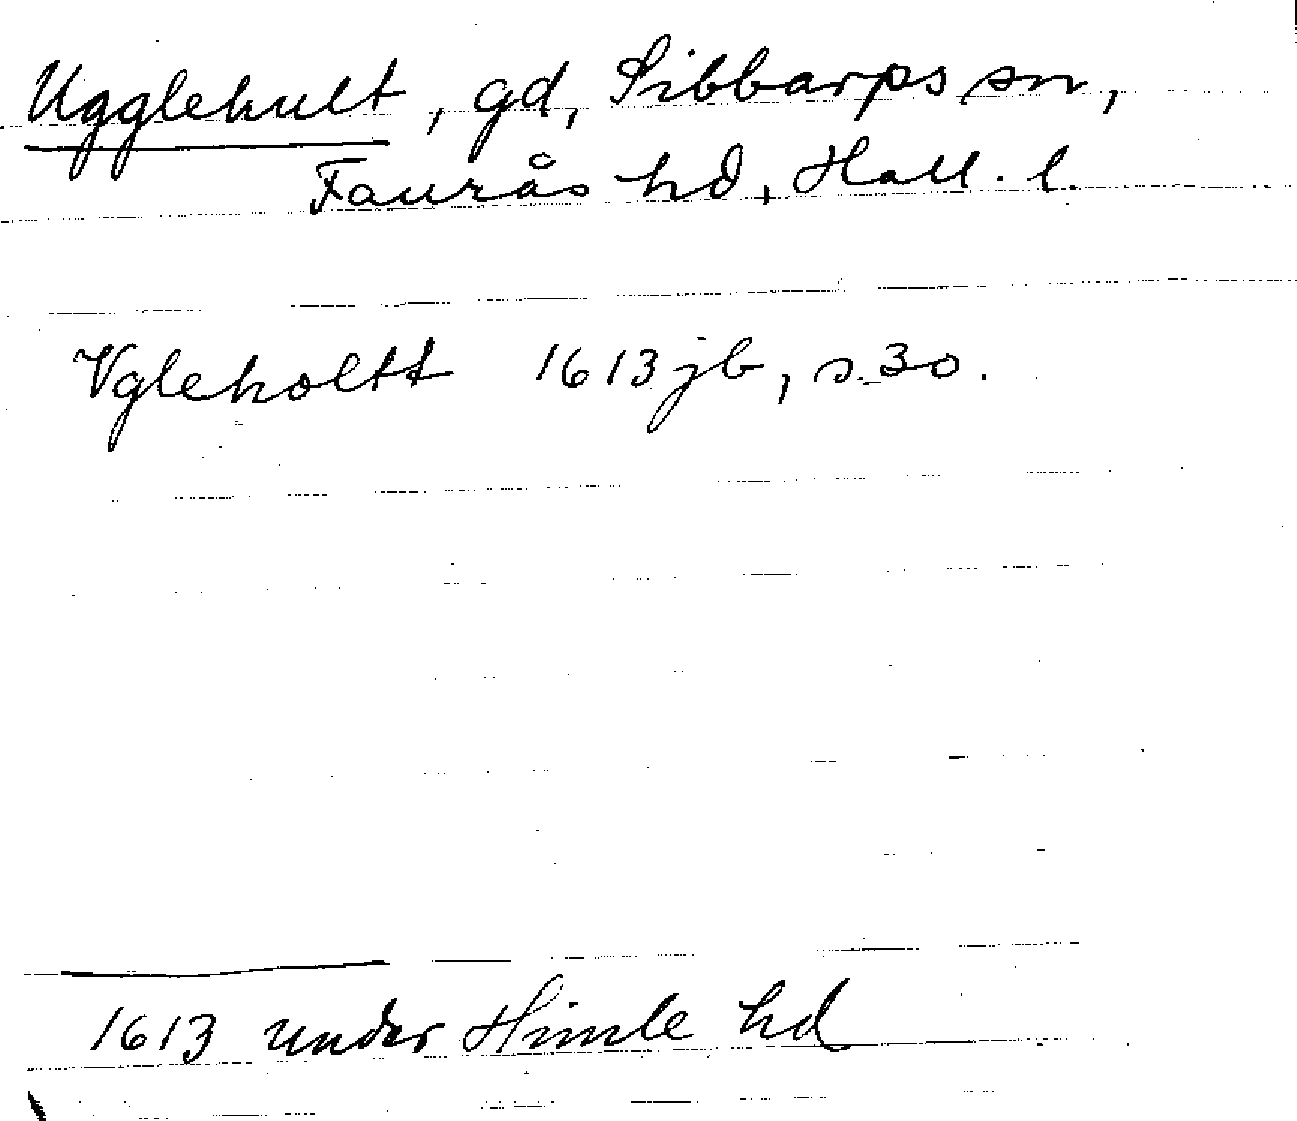 Ugglehult, gd, Sibbarps sn,
Faurås hd, Hall. l.
Vgleholtt 1613 jb, s. 30.
1613 under Himle hd